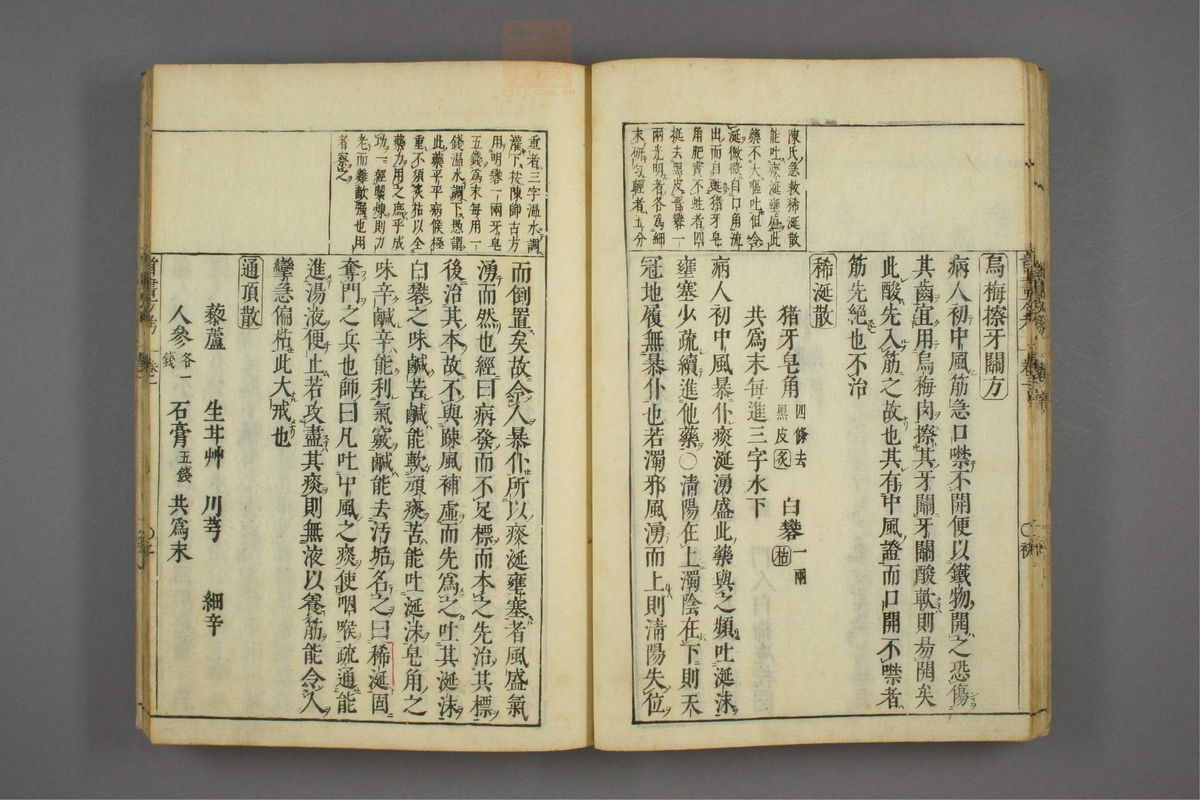 烏梅擦牙關方
病人初中風筋急口噤不開便以鐵物開之恐傷
其齒宜用烏梅肉擦其牙關牙關酸軟則易開矣
此酸先入筋之故也其有中風證而口開不噤者
筋先絕也不治
稀涎散
猪牙皂角四條去黑皮炙 白礬一兩枯
共爲末每進三字水下
病人初中風暴仆痰涎湧盛此藥與之頻吐涎沫
壅塞少疏續進他藥○清陽在上濁陰在下則天
冠地履無暴仆也若濁邪風湧而上則清陽失位
陳氏急救稀涎散
能吐痰涎壅盛此
藥不大嘔吐但令
涎微微自口角流
出而自甦猪牙皂
角肥實不蛀者四
挺去黑皮晉礬一
兩光明者各爲細
末研勻輕者五分
而倒置矣故令人暴仆所以痰涎壅塞者風盛氣
湧而然也經曰病發而不足標而本之先治其標
後治其本故不與疎風補虛而先爲之吐其涎沫
白礬之味鹹苦鹹能軟頑痰苦能吐涎沫皂角之
味辛鹹辛能利氣竅鹹能去汚垢名之曰稀涎固
奪門之兵也師曰凡吐中風之痰使咽喉疏通能
進湯液便止若攻盡其痰則無液以養筋能令人
攣急偏枯此大戒也
通頂散
藜蘆 生甘艸 川芎 細辛
人參各一錢 石膏五錢 共爲末
重者三字溫水調
灌下按陳師古方
用明礬一兩牙皂
五錢爲末每用一
錢溫水調下愚謂
此藥平平病候極
重不須炙枯以全
藥力用之庶乎成
功一經製煉則力
老而難軟頑也用
者察之